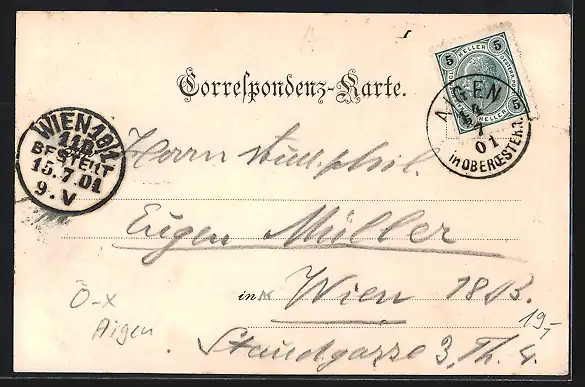 Correspondenz-Karte.
5 HELLER 5
5 HELLER 5
AIGEN
7
01
in OBEROESTERR.
WIEN 18/1
BESTELLT
15.7.01
9.V
Herrn stud. phil.
Eugen Müller
in Wien 18B.
Staudgasse 3, Th. 4.
Ö-X
Aigen
19,-